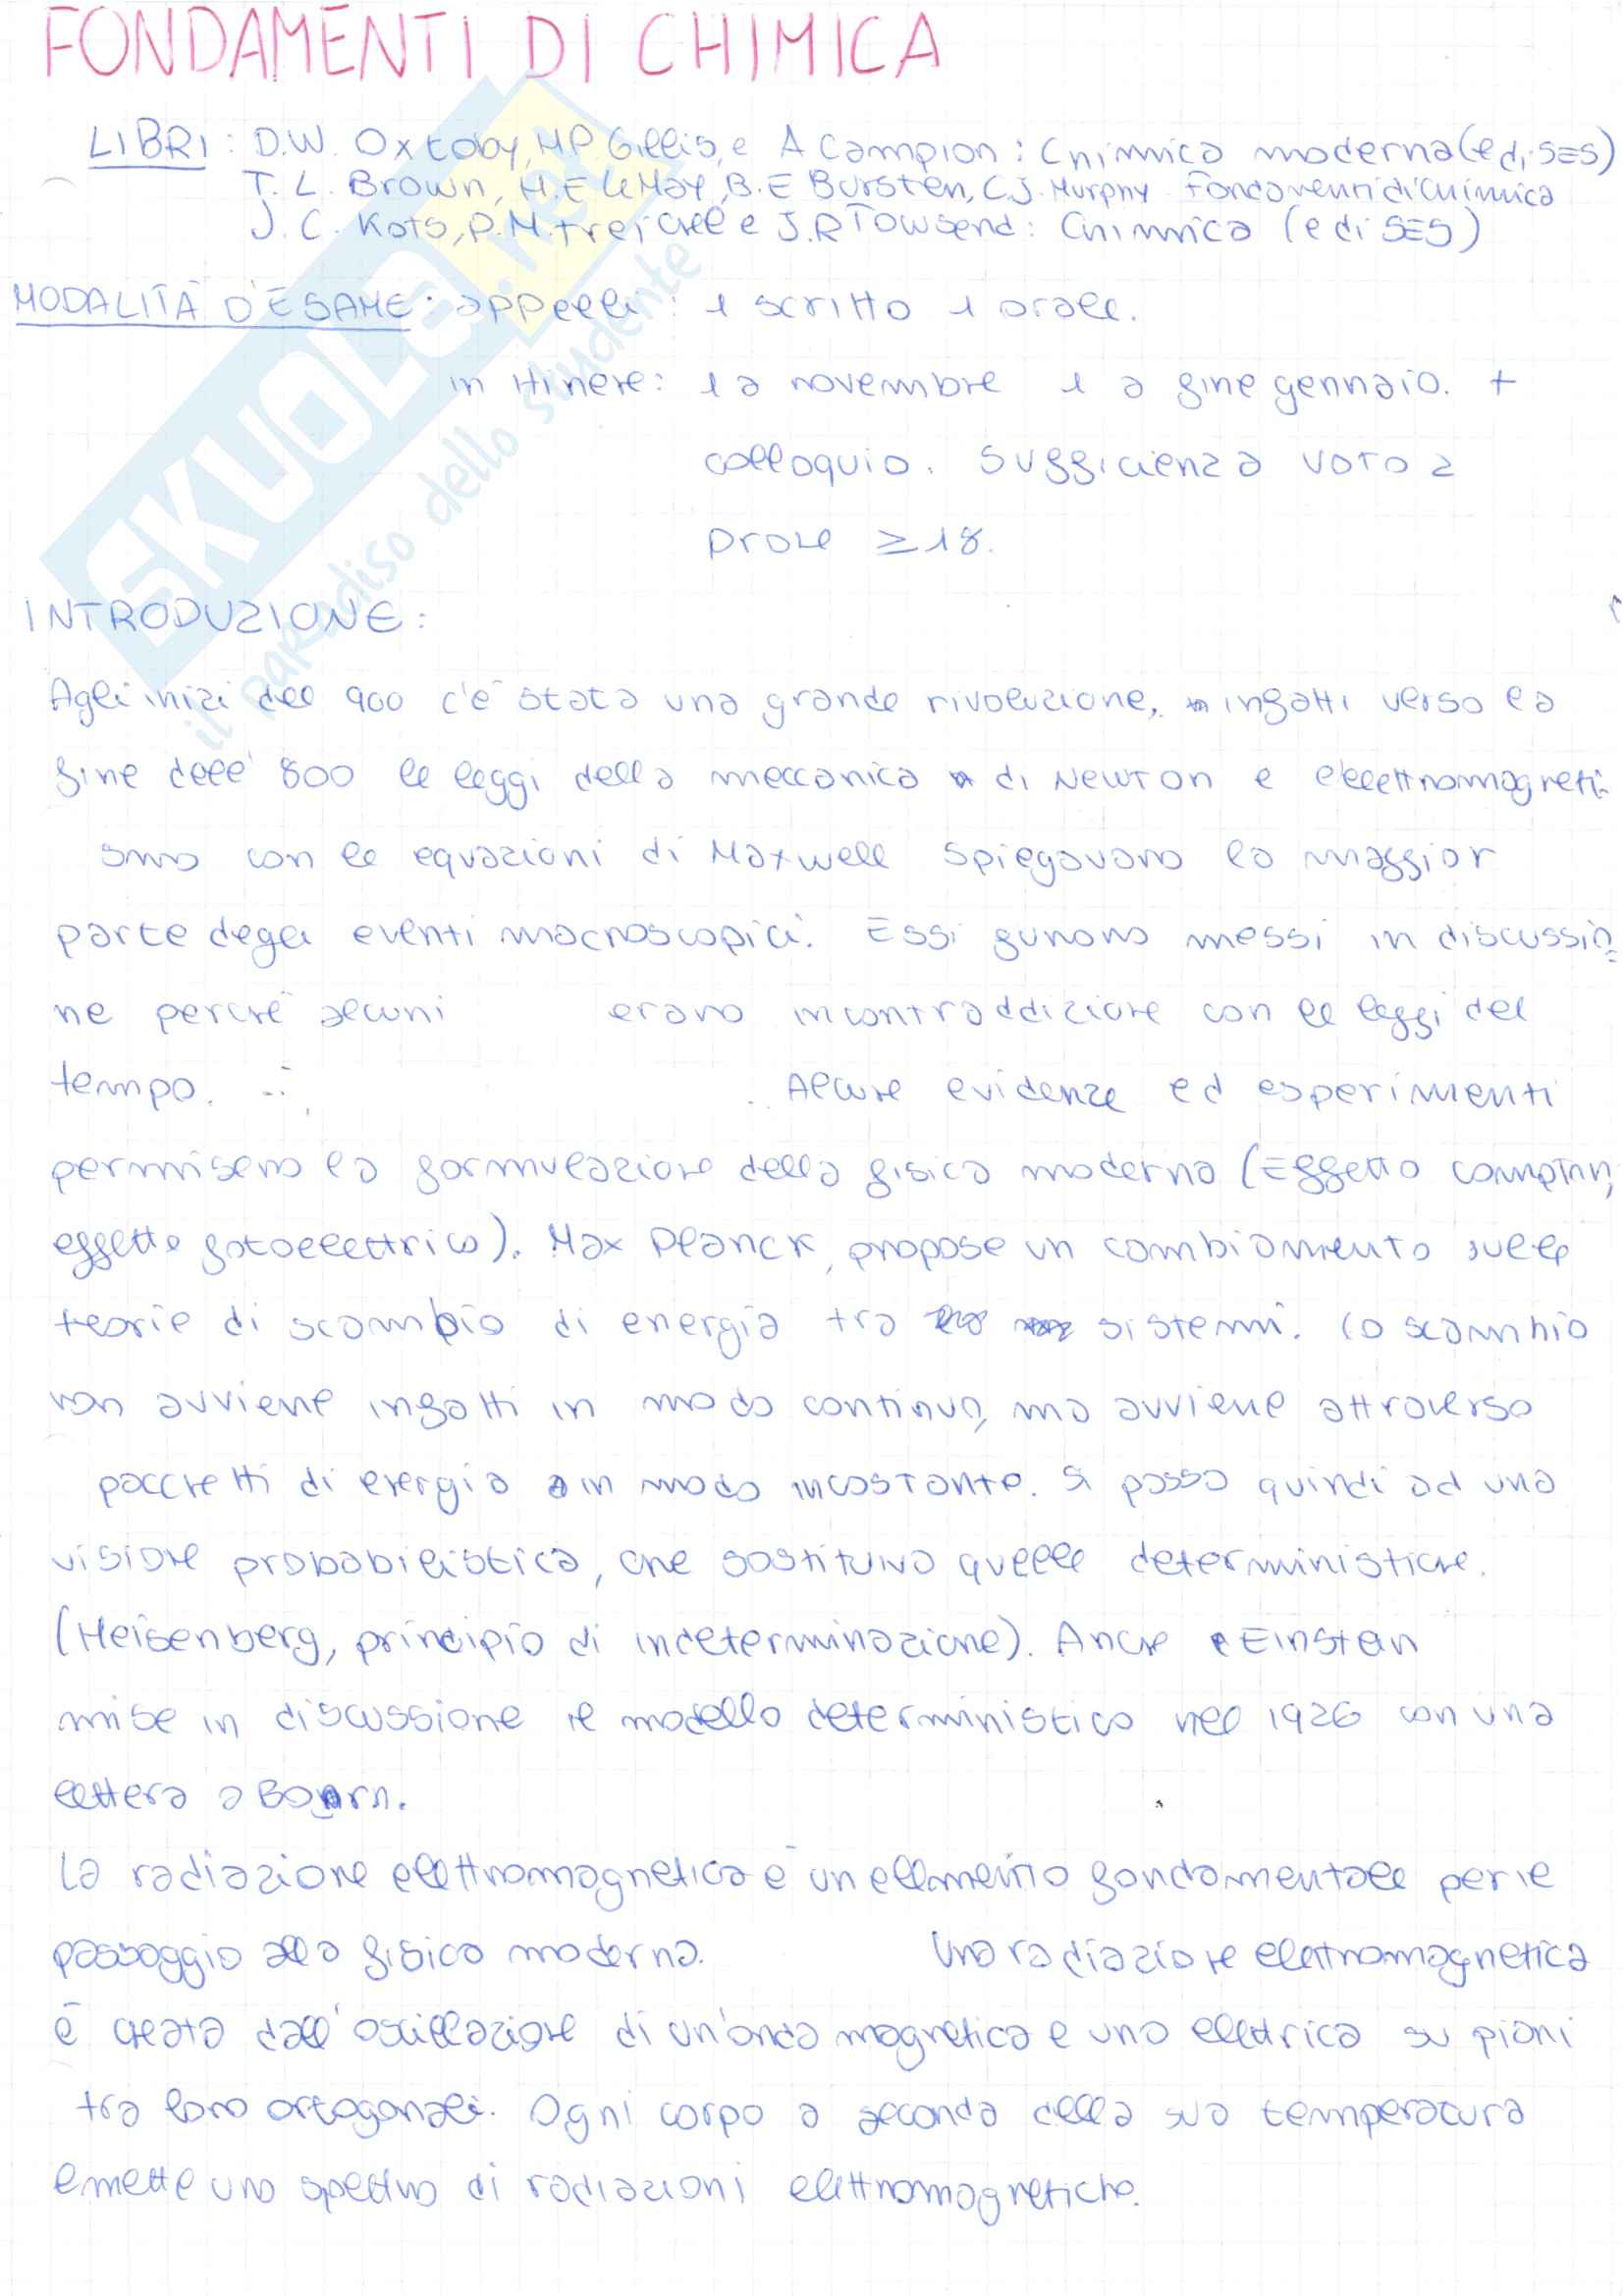 FONDAMENTI DI CHIMICA
LIBRI: D.W. Oxtoby, H.P. Gillis, e A Campion: Chimica moderna (ediSES)
T. L. Brown, H.E LeMay, B.E Bursten, C.J. Murphy Fondamenti di chimica
J. C. Kots, P. M. treichel e J.R Towsend: Chimica (ediSES)
MODALITÀ D'ESAME: appelli: 1 scritto 1 orale.
in itinere: 1 a novembre 1 a fine gennaio. +
colloquio. Sufficienza voto 2
prove ≥18.
INTRODUZIONE:
Agli inizi del 900 c'è stata una grande rivoluzione, infatti verso la
fine dell' 800 le leggi della meccanica di Newton e elettromagneti-
smo con le equazioni di Maxwell spiegavano la maggior
parte degli eventi macroscopici. Essi furono messi in discussio
ne perchè alcuni erano in contraddizione con le leggi del
tempo. Alcune evidenze ed esperimenti
permisero la formulazione della fisica moderna (Effetto compton,
effetto fotoelettrico). Max Planck, propose un cambiamento sulle
teorie di scambio di energia tra sistemi. Lo scambio
non avviene infatti in modo continuo, ma avviene attraverso
pacchetti di energia in modo incostante. Si passa quindi ad una
visione probabilistica, che sostituiva quelle deterministiche.
(Heisenberg, principio di indeterminazione). Anche Einstein
mise in discussione il modello deterministico nel 1926 con una
lettera a Born.
La radiazione elettromagnetica è un ellmento fondamentale per il
passaggio alla fisica moderna. Una radiazione elettromagnetica
è creata dall'oscillazione di un'onda magnetica e una elettrica su piani
tra loro ortogonali. Ogni corpo a seconda della sua temperatura
emette uno spettro di radiazioni elettromagnetiche.
SKUOLA.net
il paradiso dello studente